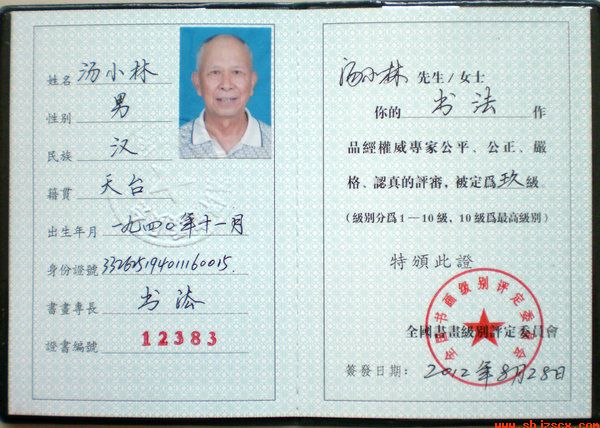 姓名 汤小林
性别 男
民族 汉
籍貫 天台
出生年月 一九四〇年十一月
身份證號 332625194011160015.
書畫專長 书法
證書編號 12383
汤小林 先生/女士
你的 书法 作
品經權威專家公平、公正、嚴
格、認真的評審，被定爲玖級
(級别分爲1—10級，10級爲最高級别)
特頒此證
全國書畫級别評定委員會
全国书画级别评定委员会
簽發日期：2012年8月28日